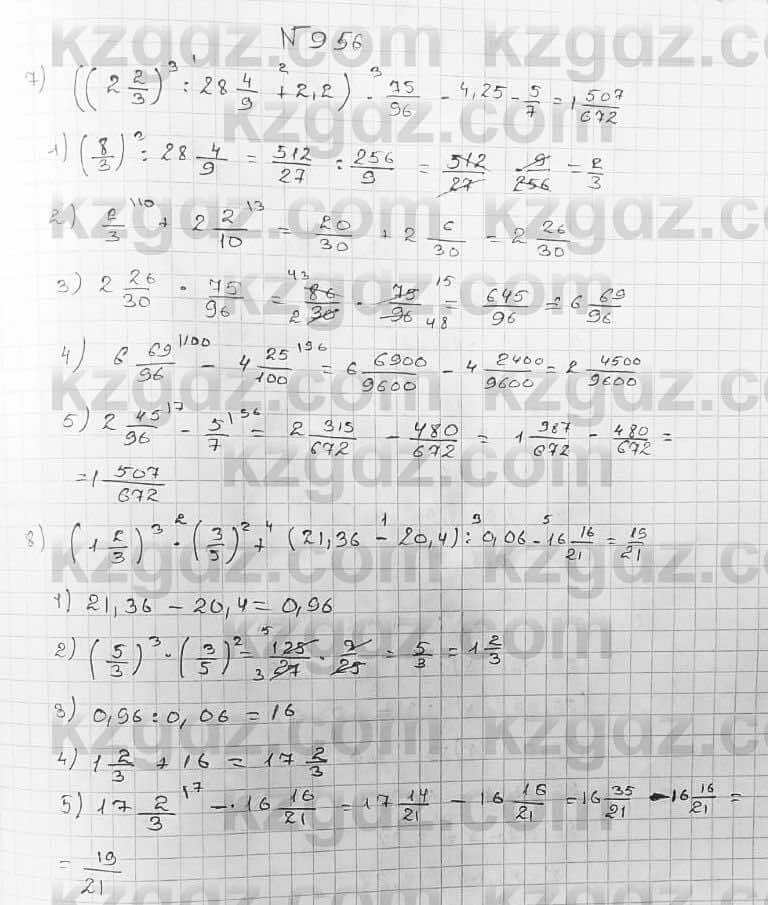 №956
7) ((2 2/3)³ : 28 4/9 + 2,2) · 75/96 - 4,25 - 5/7 = 1 507/672
1) (8/3)³ : 28 4/9 = 512/27 : 256/9 = 512/27 · 9/256 = 2/3
2) 2/3 + 2 2/10 = 20/30 + 2 6/30 = 2 26/30
3) 2 26/30 · 75/96 = 86/30 · 75/96 = 645/96 = 6 69/96
4) 6 69/96 - 4 25/100 = 6 6900/9600 - 4 2400/9600 = 2 4500/9600
5) 2 45/96 - 5/7 = 2 315/672 - 480/672 = 1 987/672 - 480/672 =
= 1 507/672
8) (1 2/3)³ · (3/5)² + (21,36 - 20,4) : 0,06 - 16 16/21 = 19/21
1) 21,36 - 20,4 = 0,96
2) (5/3)³ · (3/5)² = 125/27 · 9/25 = 5/3 = 1 2/3
3) 0,96 : 0,06 = 16
4) 1 2/3 + 16 = 17 2/3
5) 17 2/3 - 16 16/21 = 17 14/21 - 16 16/21 = 16 35/21 - 16 16/21 =
= 19/21
kzgdz.com